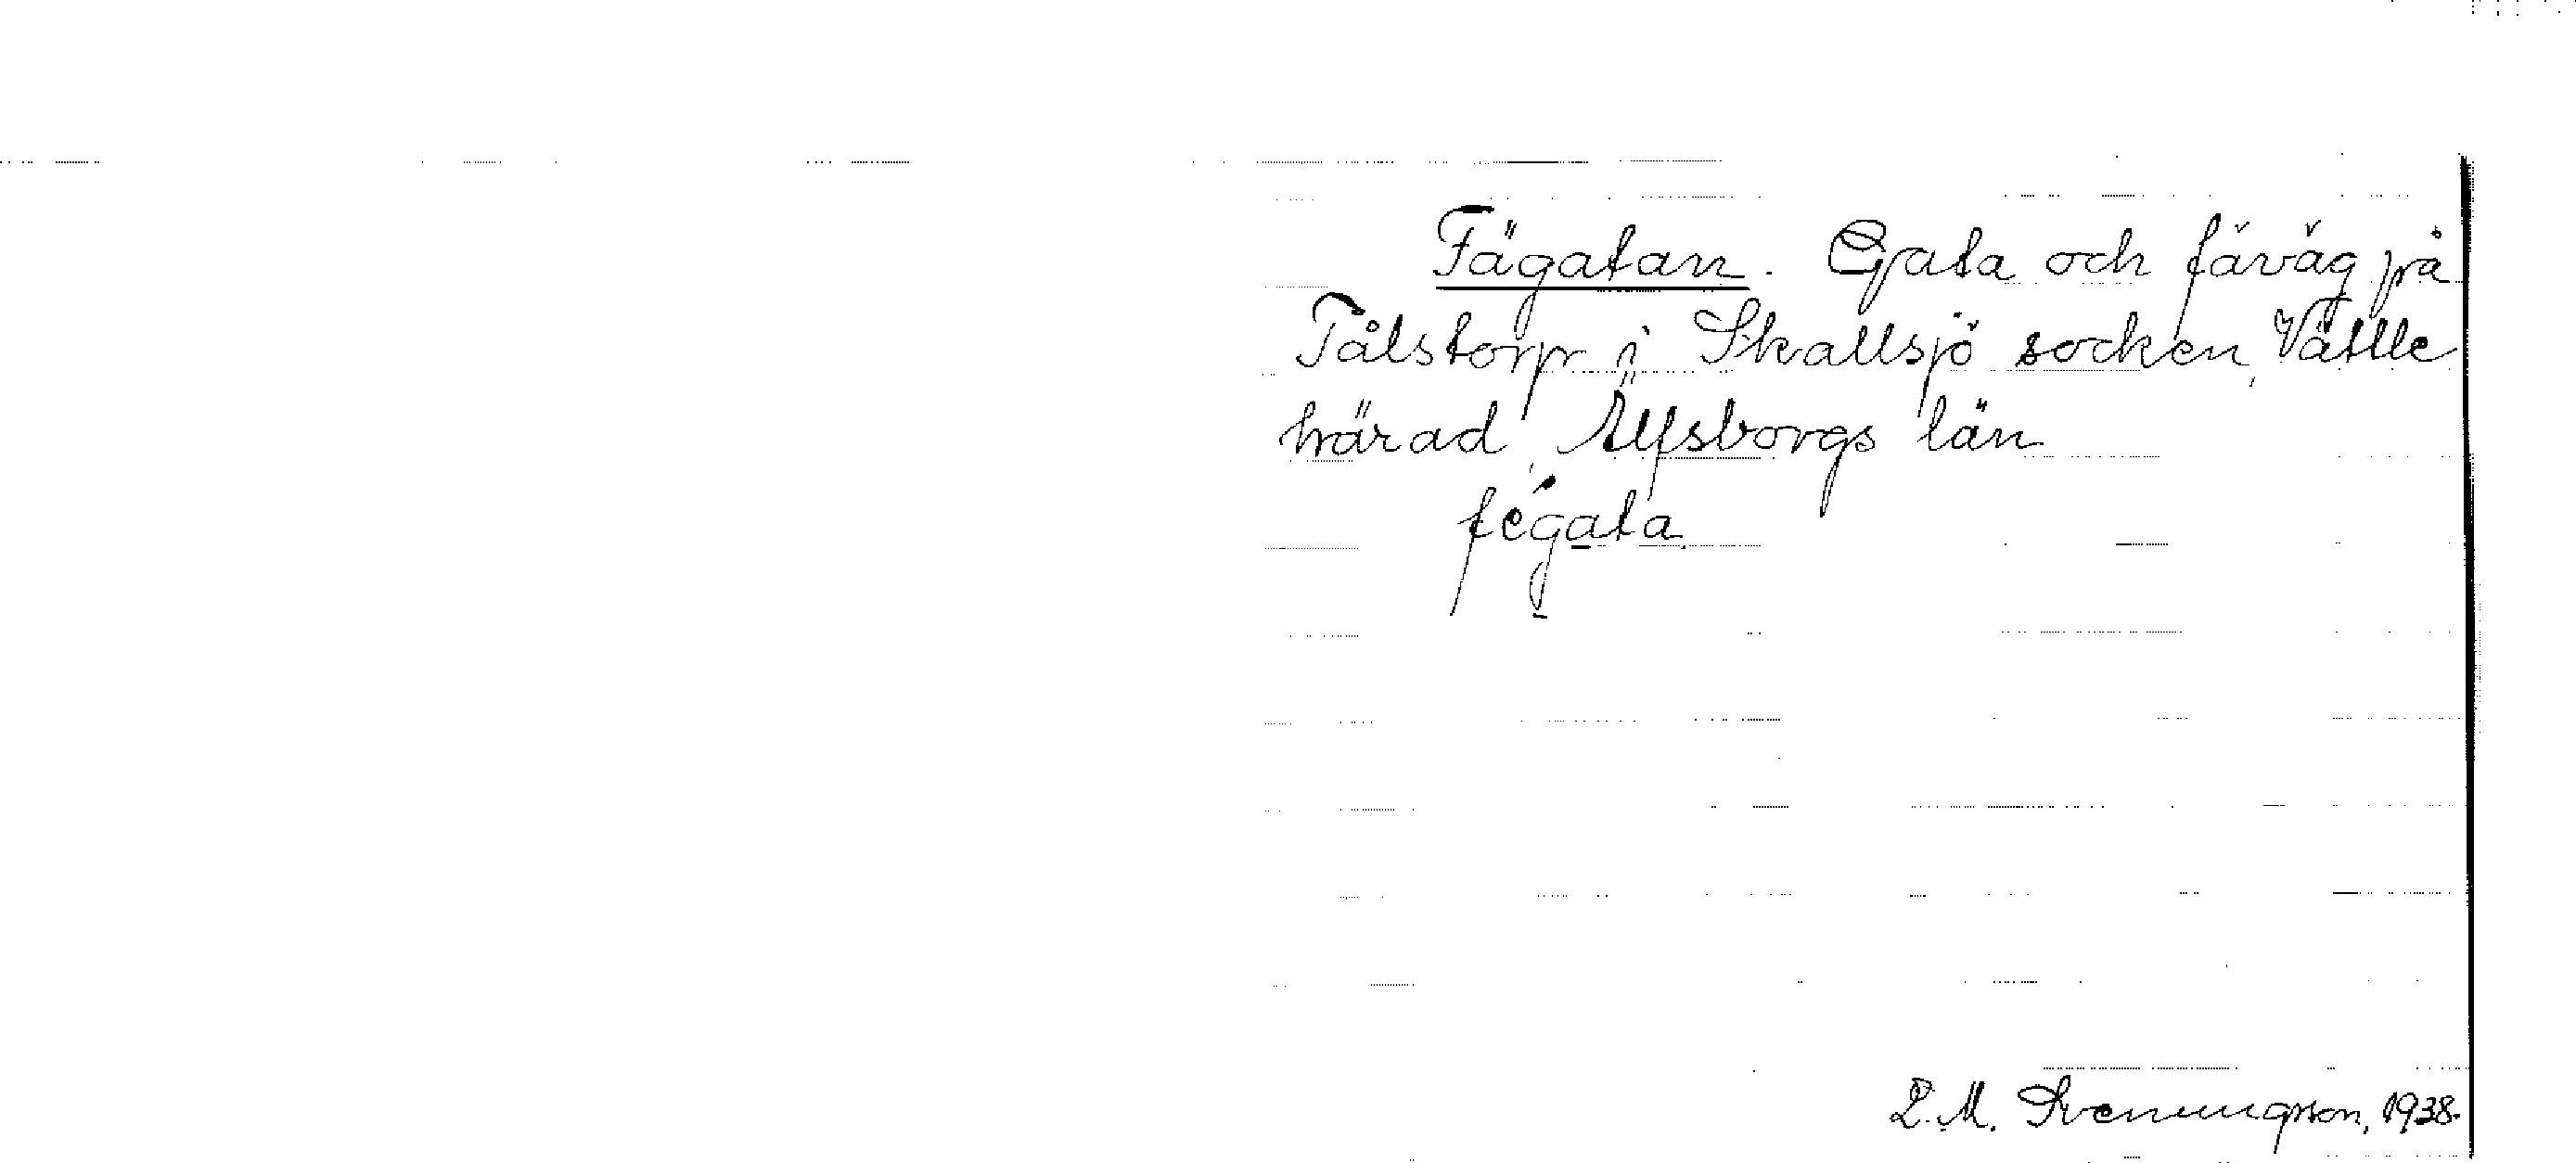 Fägatan. Gata och fäväg på
Tålstorp i Skallsjö socken, Vättle
härad, Älfsborgs län
fégata.
L. M. Svenungsson, 1938.